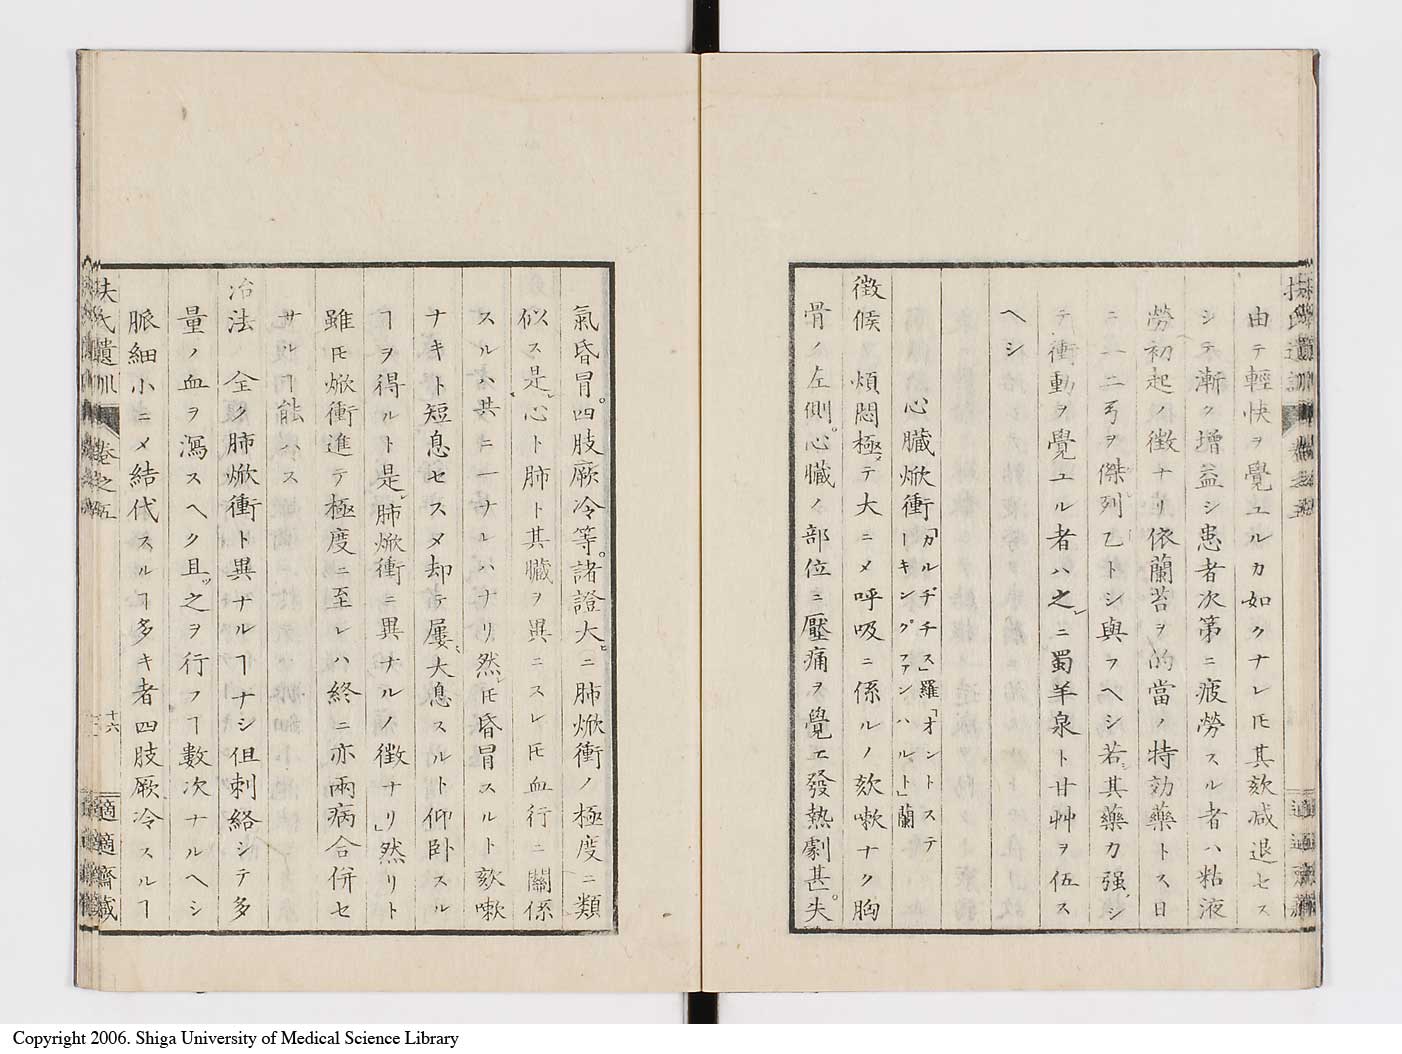 由テ輕快ヲ覺ユルカ如クナレ𪜈其欬减退セス
シテ漸ク増益シ患者次第ニ疲勞スル者ハ粘液
勞初起ノ徴ナリ依蘭苔ヲ的當ノ特効藥トス日
ニ一二弓ヲ傑列乙トシ與フヘシ若シ其藥力强シ
テ衝動ヲ覺ユル者ハ之レニ蜀羊泉ト甘艸ヲ伍ス
ヘシ
心臓焮衝「カルヂチス」羅「オントステ
ーキングファンハルト」蘭
徴候 煩悶極メテ大ニメ呼吸ニ係ルノ欬嗽ナク胸
骨ノ左側。心臓ノ部位ニ壓痛ヲ覺エ發熱劇甚。失
扶氏遺訓 卷之五
適適齋藏
氣昏冒。四肢厥冷等。諸證大ヒニ肺焮衝ノ極度ニ類
似ス是レ心ト肺ト其臓ヲ異ニスレ𪜈血行ニ關係
スルハ共ニ一ナルハナリ然レ𪜈昏冒スルト欬嗽
ナキト短息セスメ却テ屢〻大息スルト仰卧スル
ヿヲ得ルト是レ肺焮衝ニ異ナルノ徴ナリ」然リト
雖𪜈焮衝進テ極度ニ至レハ終ニ亦兩病合併セ
サルヿ能ハス
治法 全ク肺焮衝ト異ナルヿナシ但刺絡シテ多
量ノ血ヲ瀉スヘク且ツ之ヲ行フヿ數次ナルヘシ
脈細小ニメ結代スルヿ多キ者四肢厥冷スルヿ
扶氏遺訓 卷之五
十六
適適齋藏
Copyright 2006. Shiga University of Medical Science Library